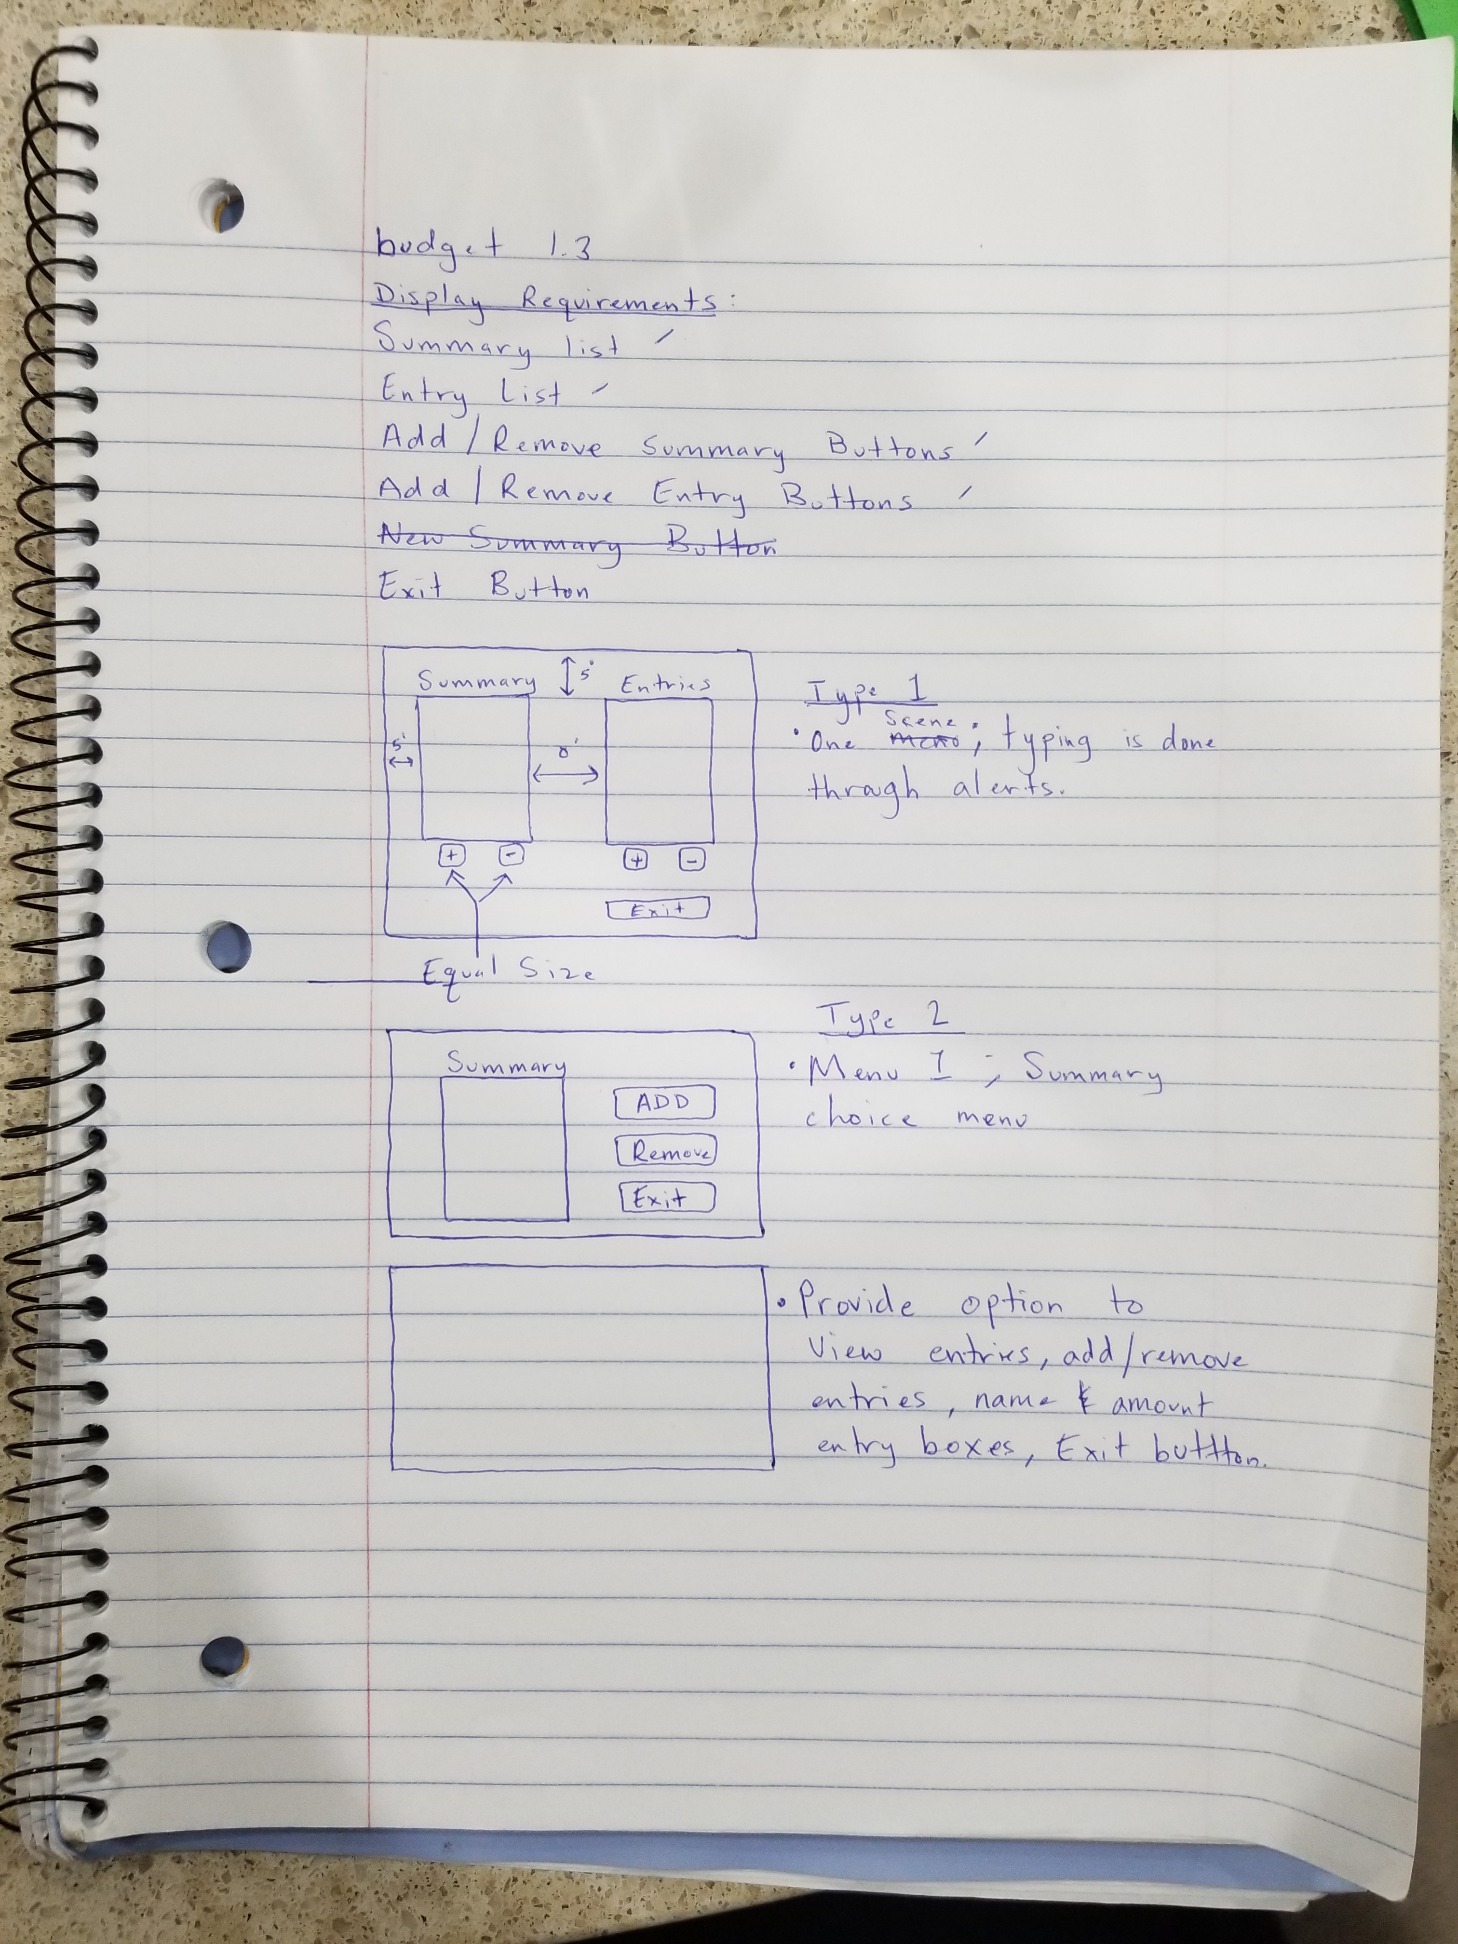 budget 1.3
Display Requirements:
Summary list
Entry List
Add / Remove Summary Buttons
Add / Remove Entry Buttons
New Summary Button
Exit Button
Summary 5' Entries
5'
+ - + -
Exit
Equal Size
Type 1
Scene
• One ; typing is done
through alerts.
Type 2
Summary
ADD
Remove
Exit
• Menu I ; Summary
choice menu
• Provide option to
View entries, add/remove
entries, name & amount
entry boxes, Exit buttton.